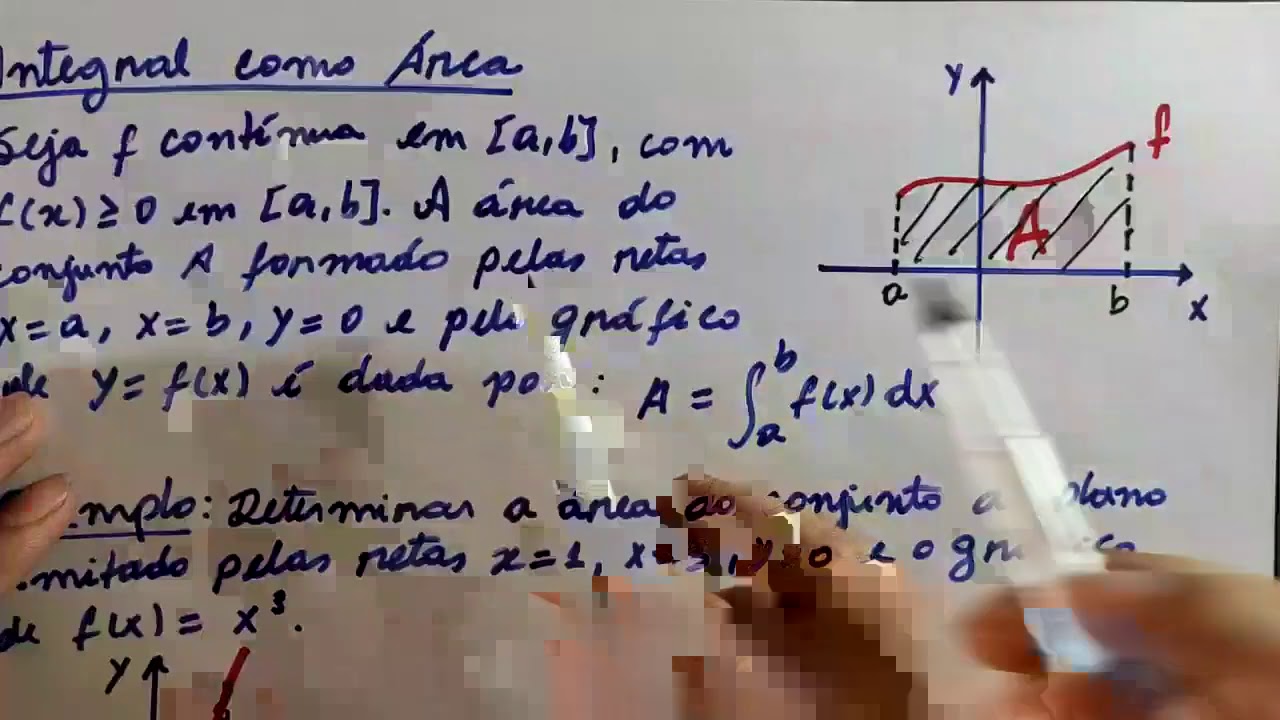 Integral como Área
Seja f contínua em [a,b], com
f(x) ≥ 0 em [a,b]. A área do
conjunto A formado pelas retas
x = a, x = b, y = 0 e pelo gráfico
de y = f(x) é dada por: A = ∫ₐᵇ f(x) dx
Exemplo: Determinar a área do conjunto do plano
limitado pelas retas x = 1, x = 3, y = 0 e o gráfico
de f(x) = x³.
y
f
A
a
b
x
y